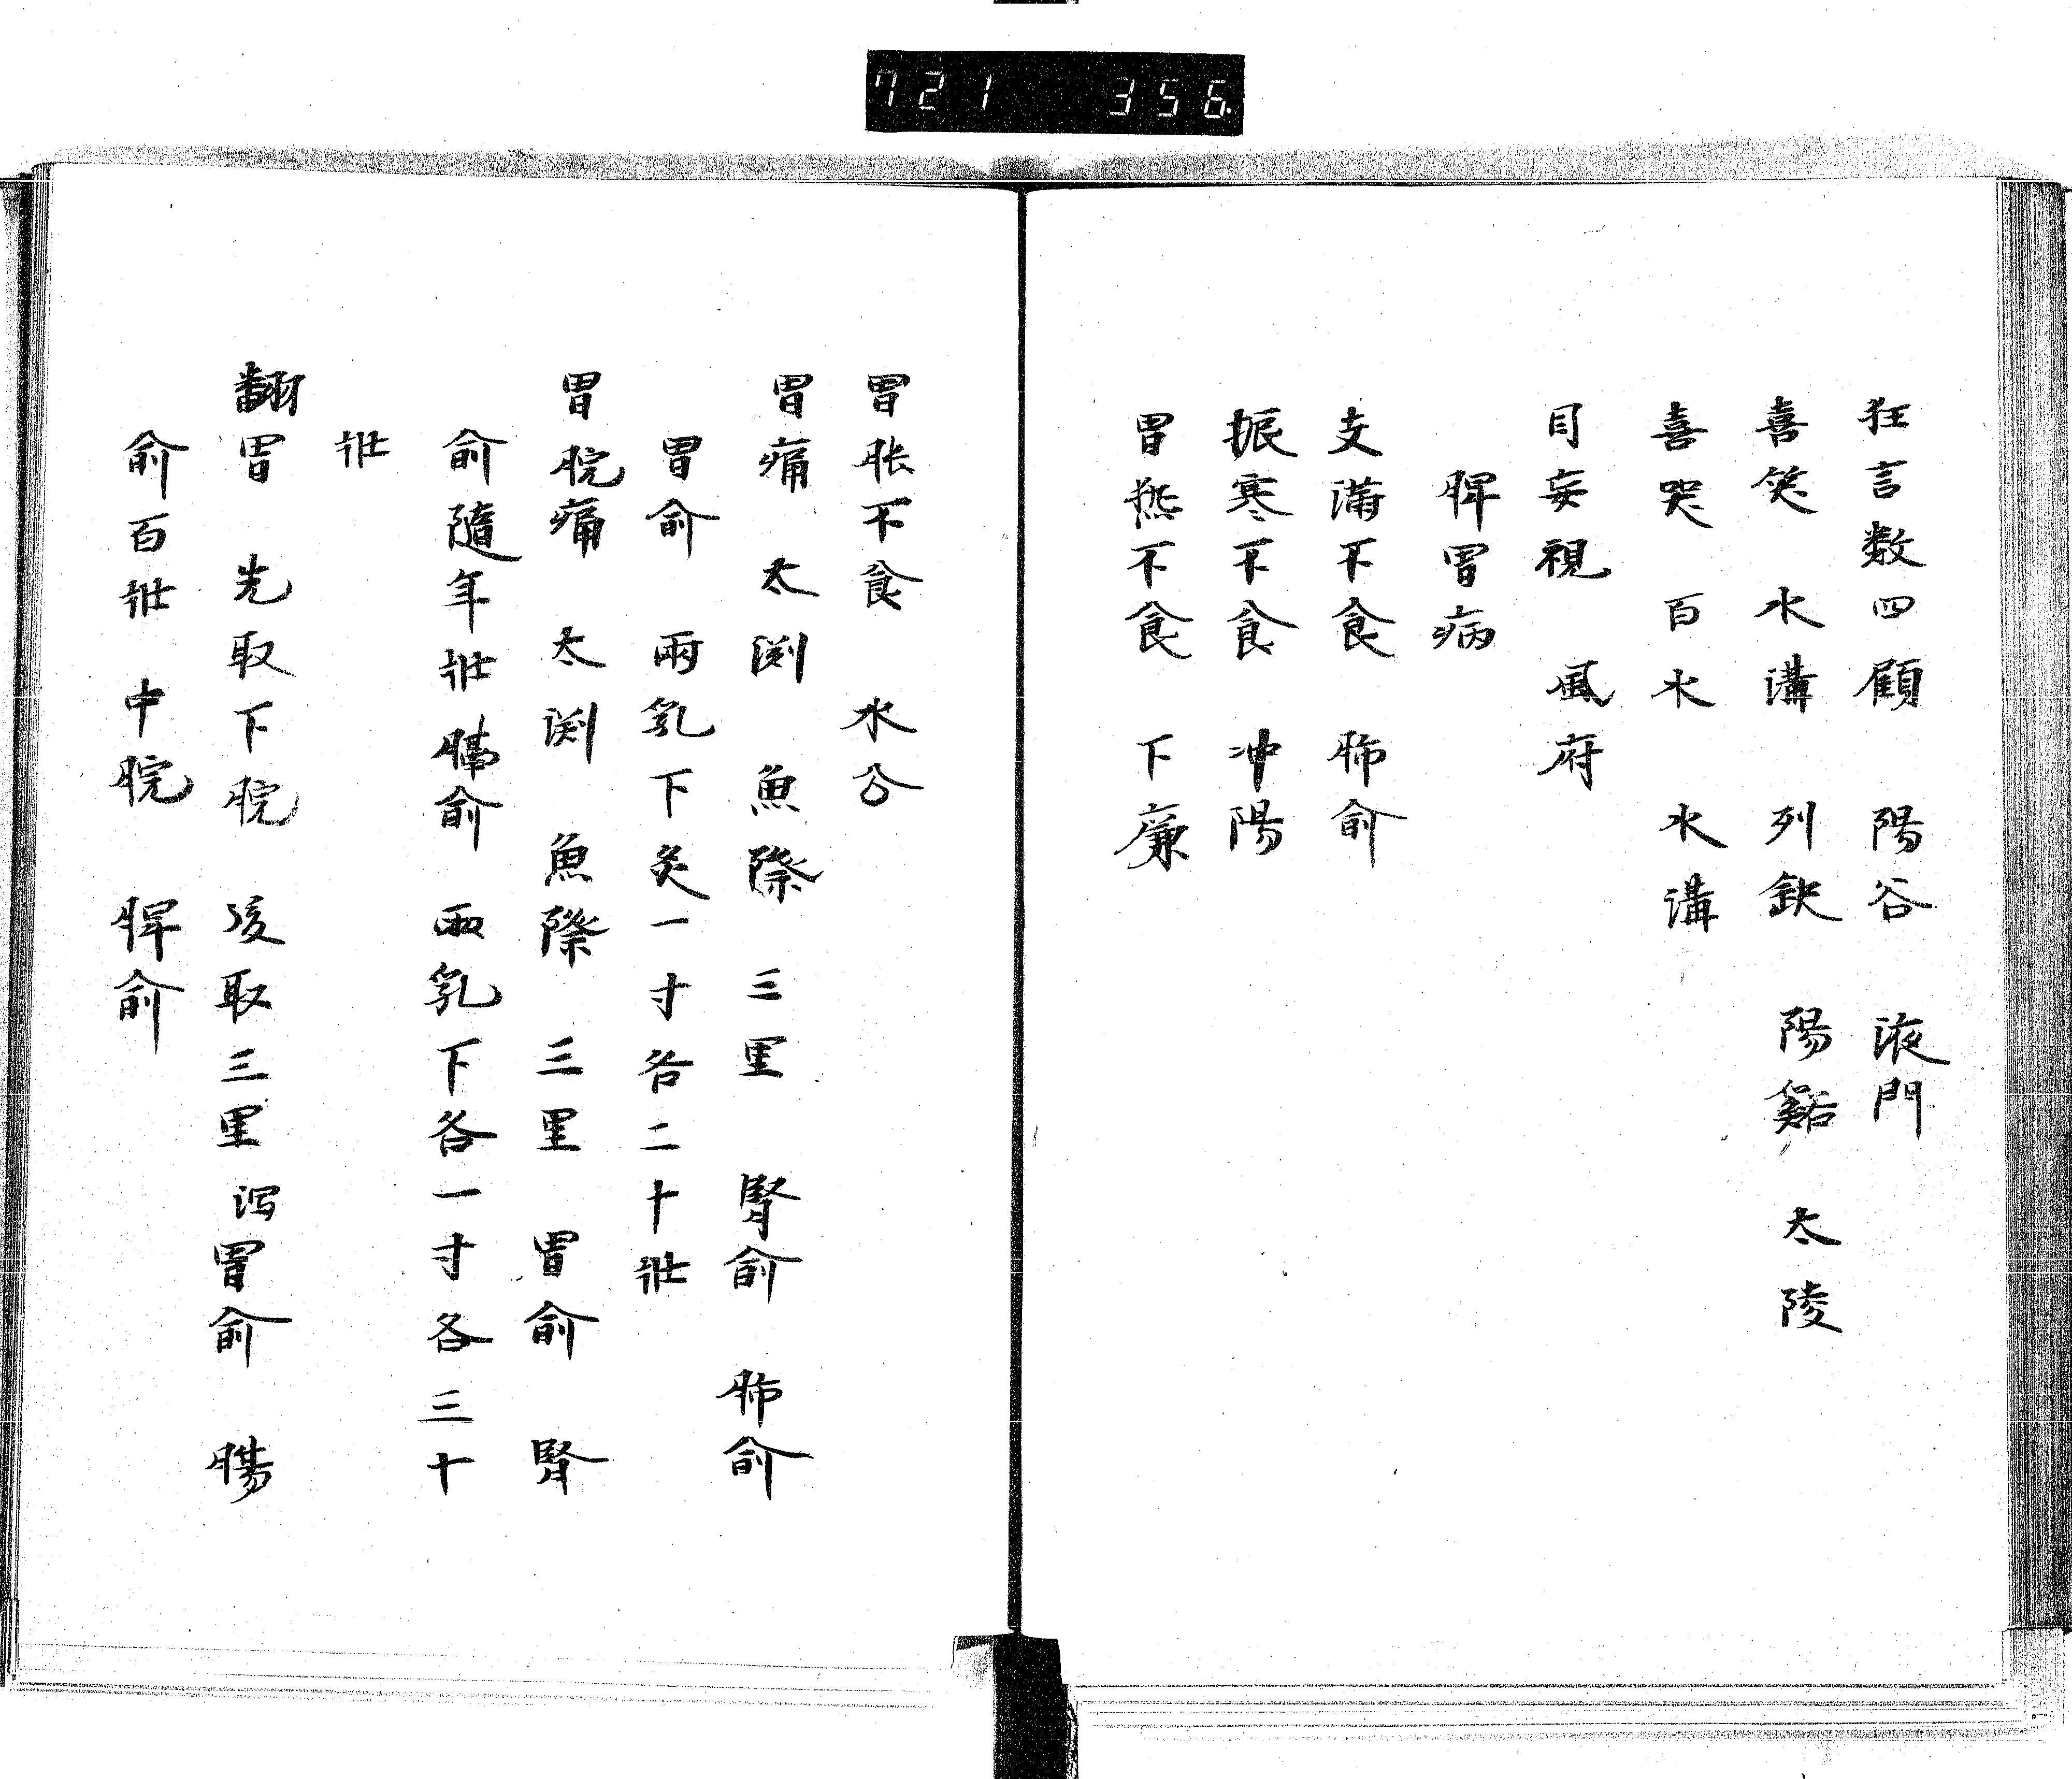 721 356.
狂言数四顧 陽谷 液門
喜笑 水溝 列缺 陽谿 太陵
喜哭 百水 水溝
目妄視 風府
脾胃病
支満不食 肺俞
振寒不食 冲陽
胃熱不食 下廉
胃脹不食 水分
胃痛 太渕 魚際 三里 腎俞 肺俞
胃俞 兩乳下灸一寸各二十壯
胃脘痛 太渕 魚際 三里 胃俞 腎
俞隨年壯 膈俞 兩乳下各一寸各三十
壯
翻胃 先取下脘 後取三里 泻胃俞 膓
俞百壯 中脘 脾俞